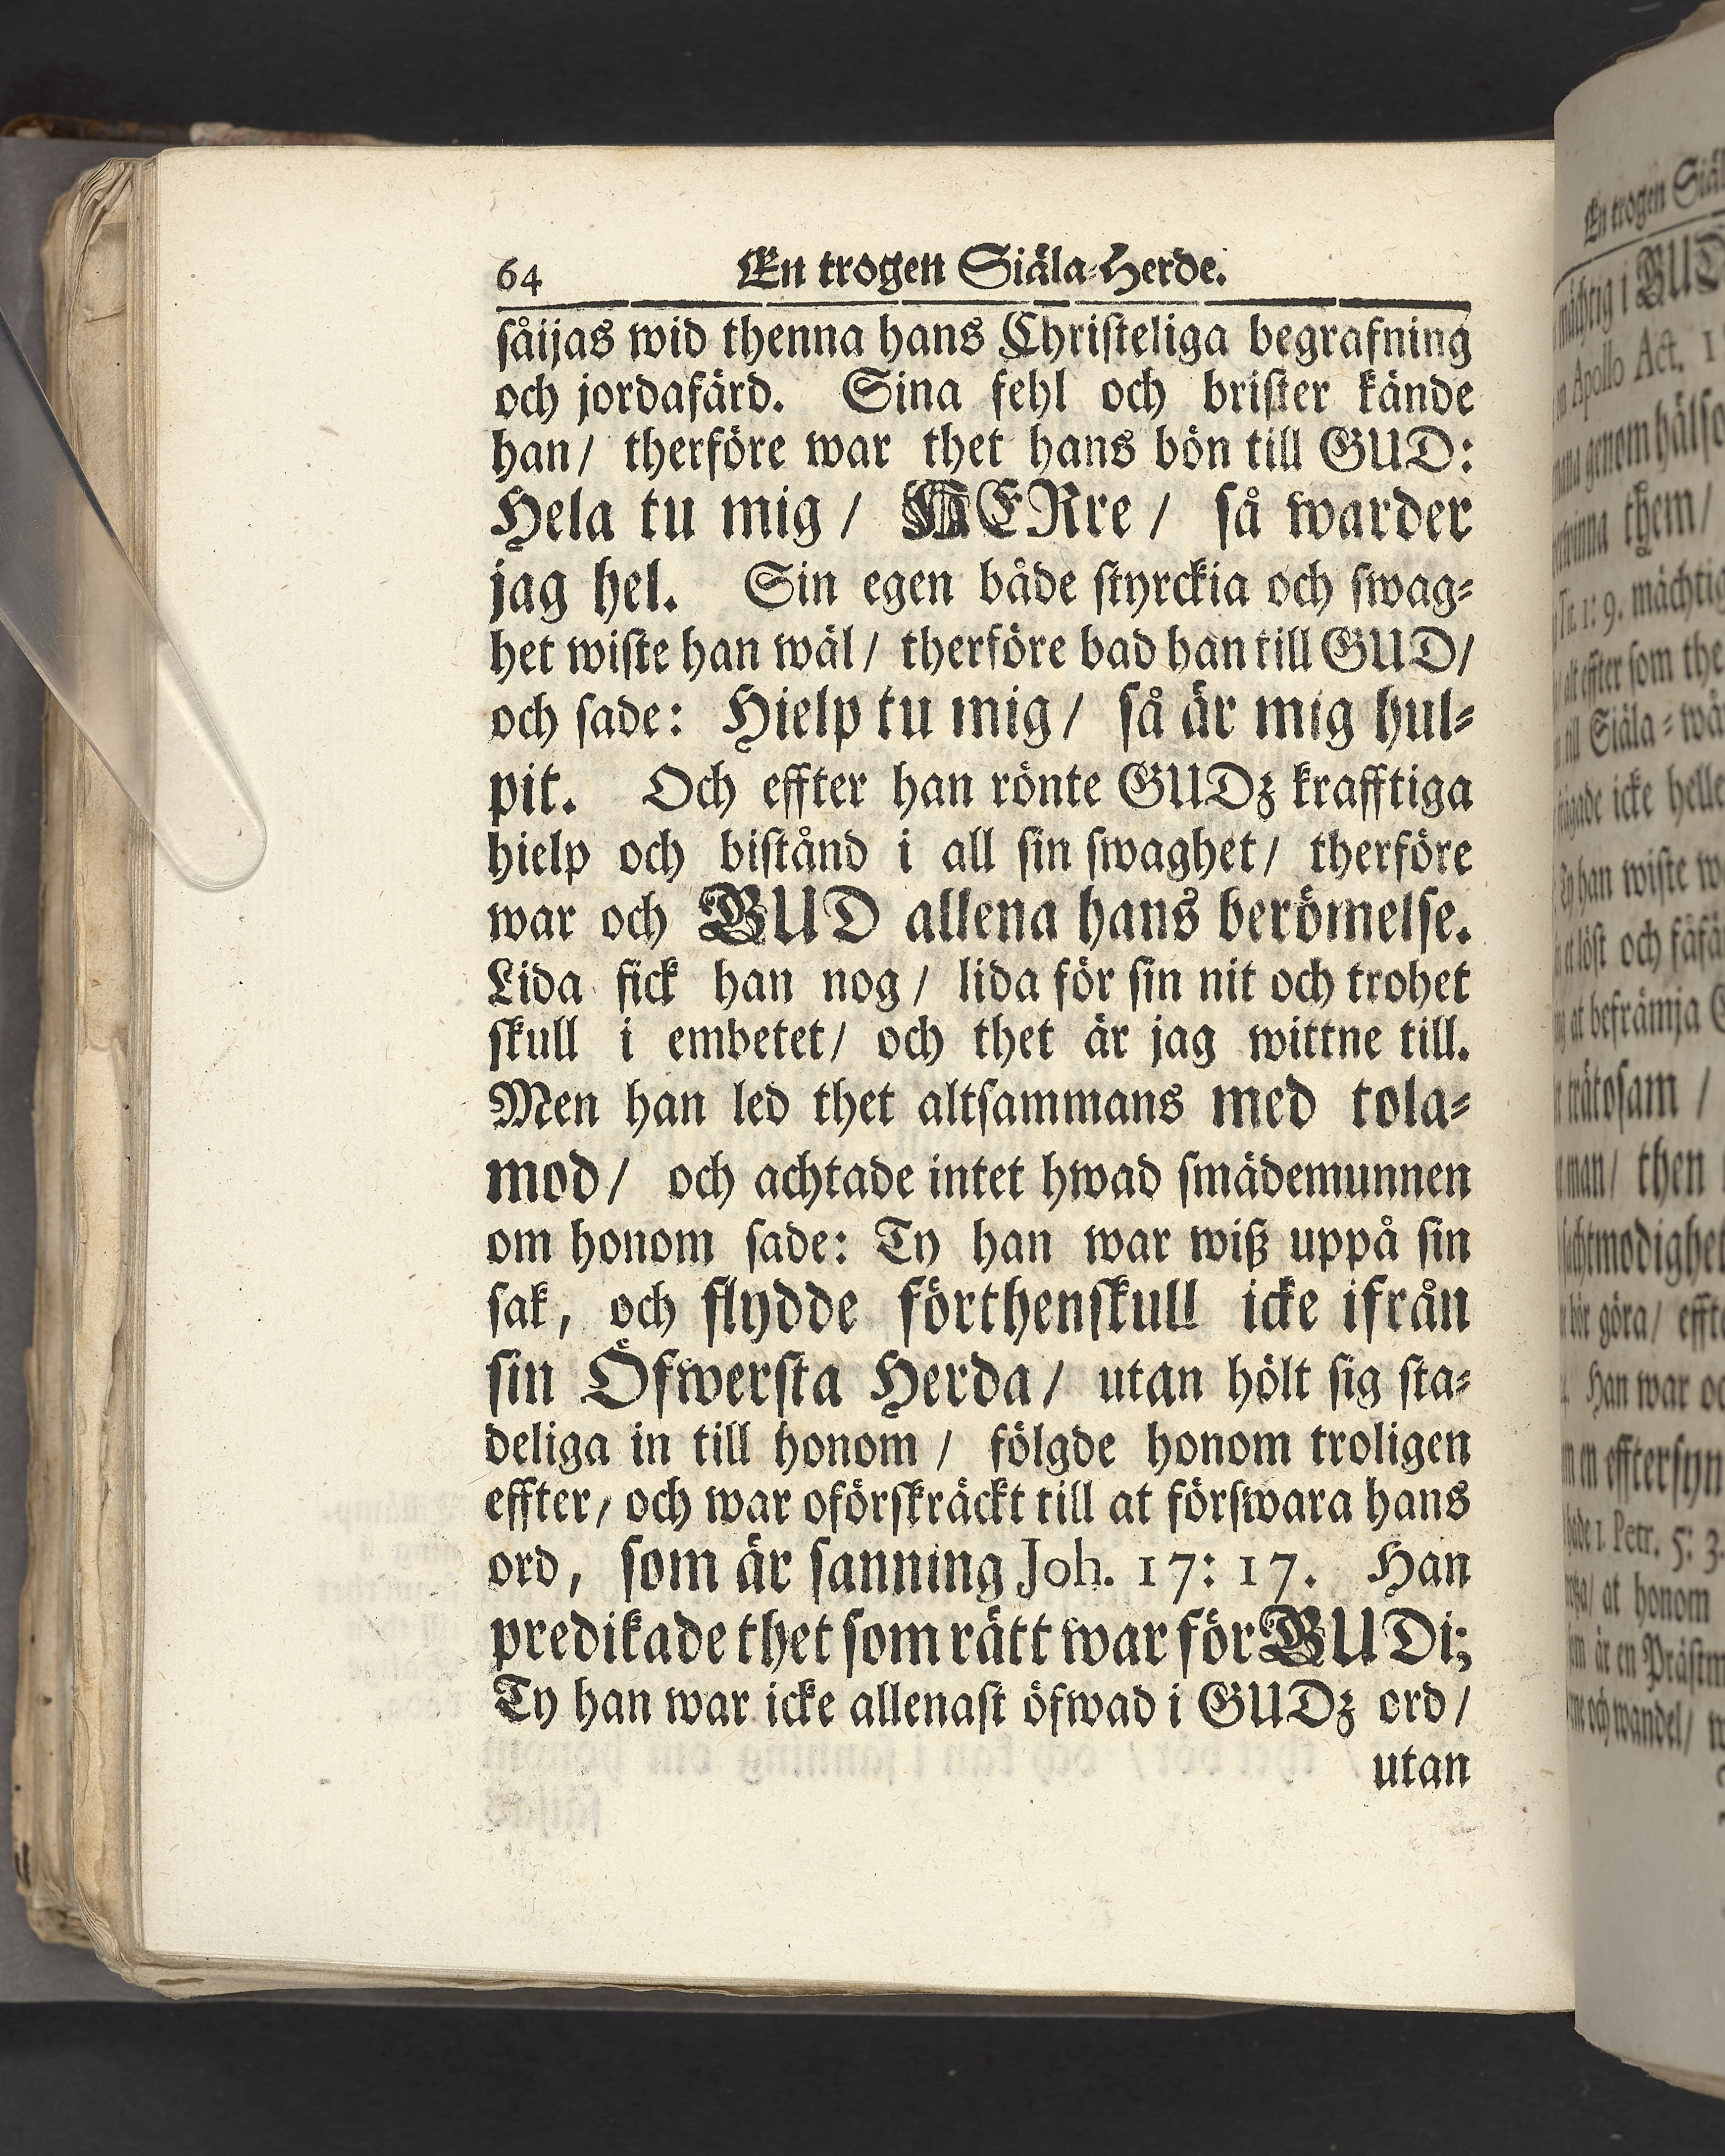 64 En trogen Siäla-Herde.
såijas wid thenna hans Christeliga begrafning
och jordafärd. Sina fehl och brister kände
han/ therföre war thet hans bön till GUD:
Hela tu mig/ HERre/ så warder
jag hel. Sin egen både styrckia och swag-
het wiste han wäl/ therföre bad han till GUD/
och sade: Hielp tu mig/ så är mig hul-
pit. Och effter han rönte GUDz krafftiga
hielp och bistånd i all sin swaghet/ therföre
war och GUD allena hans berömelse.
Lida fick han nog/ lida för sin nit och trohet
skull i embetet/ och thet är jag wittne till.
Men han led thet altsammans med tola-
mod/ och achtade intet hwad smädemunnen
om honom sade: Ty han war wiß uppå sin
sak, och flydde förthenskull icke ifrån
sin Öfwersta Herda/ utan hölt sig sta-
deliga in till honom/ fölgde honom troligen
effter/ och war oförskräckt till at förswara hans
ord, som är sanning Joh. 17: 17. Han
predikade thet som rätt war för GUDi;
Ty han war icke allenast öfwad i GUDz ord/
utan
En trogen
mächtig i GUD
Apollo Act. 1
genom hälso
them/
Tit. 1: 9. mächtig
effter som the
till Siäla-wå
icke helle
han wiste w
löst och fåfä
at befrämja G
trätosam /
man/ then
bör göra/ efft
Han war oc
en efftersyn
1. Petr. 5: 3.
at honom
är en Prästm
och wandel/ w